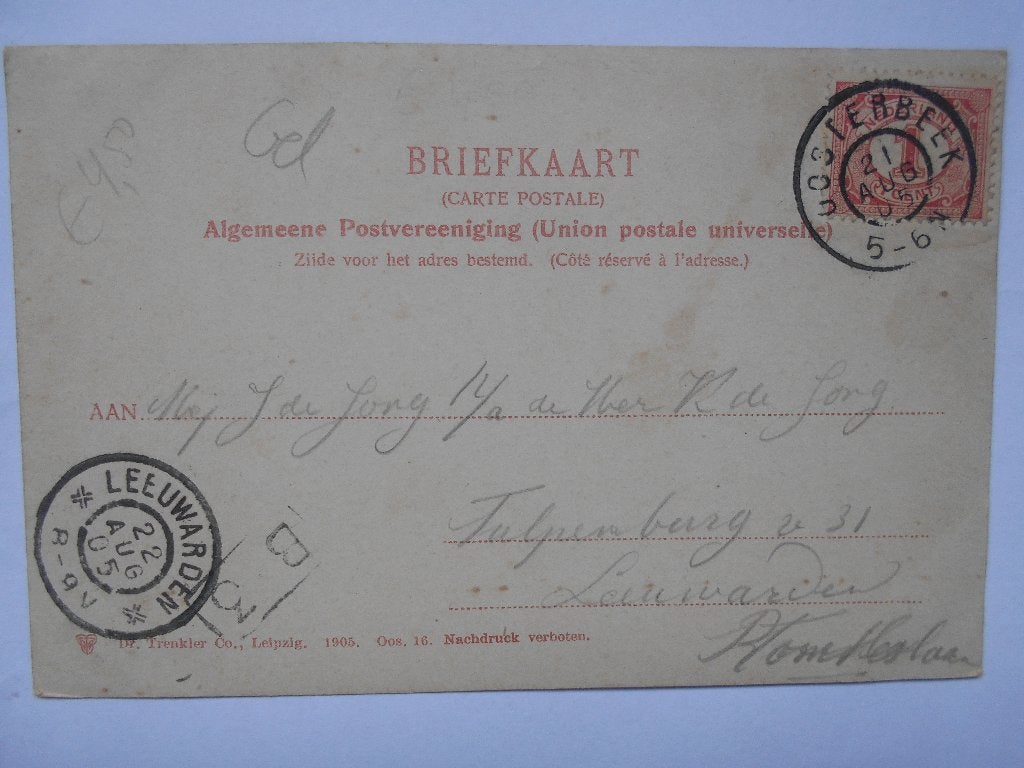 Gd
BRIEFKAART
(CARTE POSTALE)
Algemeene Postvereeniging (Union postale universelle)
Zijde voor het adres bestemd. (Côté réservé à l'adresse.)
OOSTERBEEK
21
AUG
05
5-6 N
AAN Mej J de Jong p/a de Heer K de Jong
31
Leeuwarden
LEEUWARDEN
22
AUG
05
8-9V
B
3
Dr. Trenkler Co., Leipzig. 1905. Oos. 16. Nachdruck verboten.